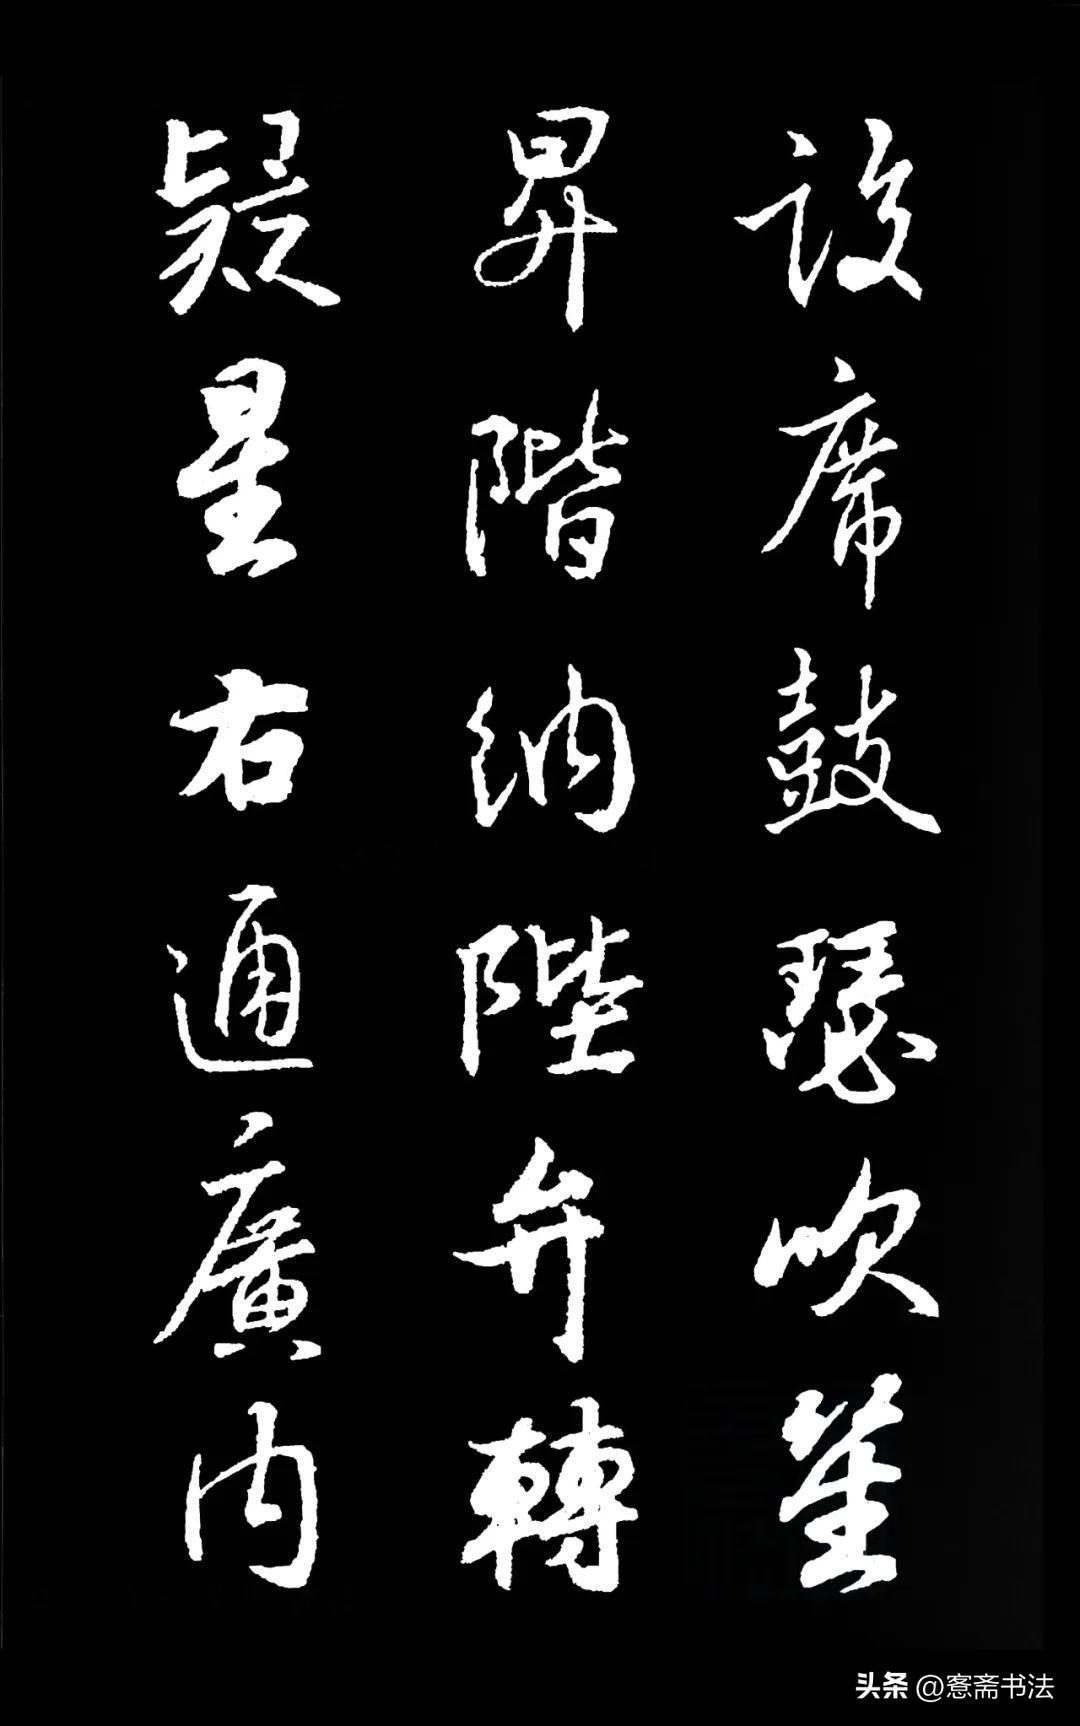 設席鼓瑟吹笙
昇階納陛弁轉
疑星右通廣內
头条 @愙斋书法